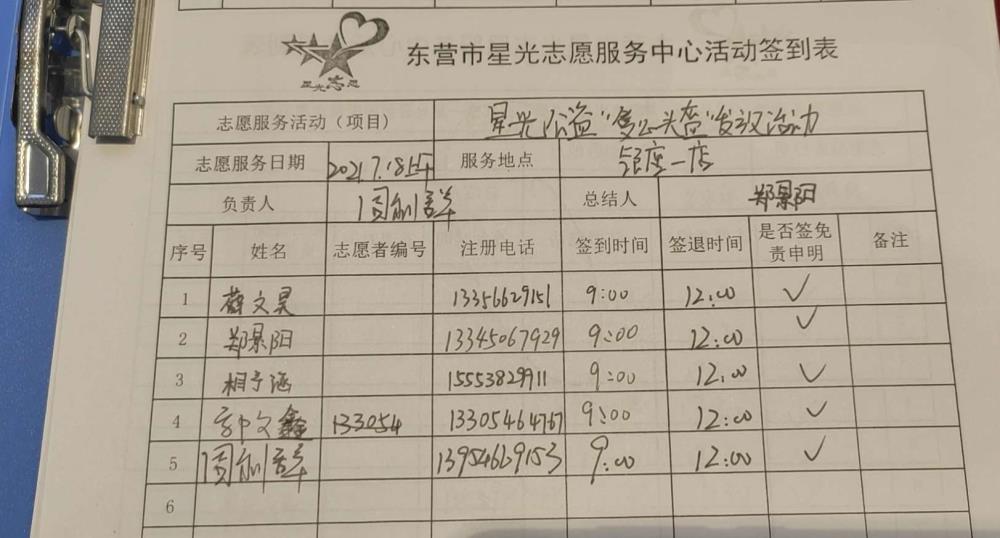 星光志愿
东营市星光志愿服务中心活动签到表
志愿服务活动（项目） 星光公益"复公共查"发放活动
志愿服务日期 2021.7.18上午 服务地点 银座一店
负责人 总结人 郑景阳
序号 姓名 志愿者编号 注册电话 签到时间 签退时间 是否签免责申明 备注
1 薛文昊 13356629151 9:00 12:00 ✓
2 郑景阳 13345067929 9:00 12:00 ✓
3 相予涵 15553829911 9:00 12:00 ✓
4 文鑫 133054 13305464767 9:00 12:00 ✓
5 13954669153 9:00 12:00 ✓
6